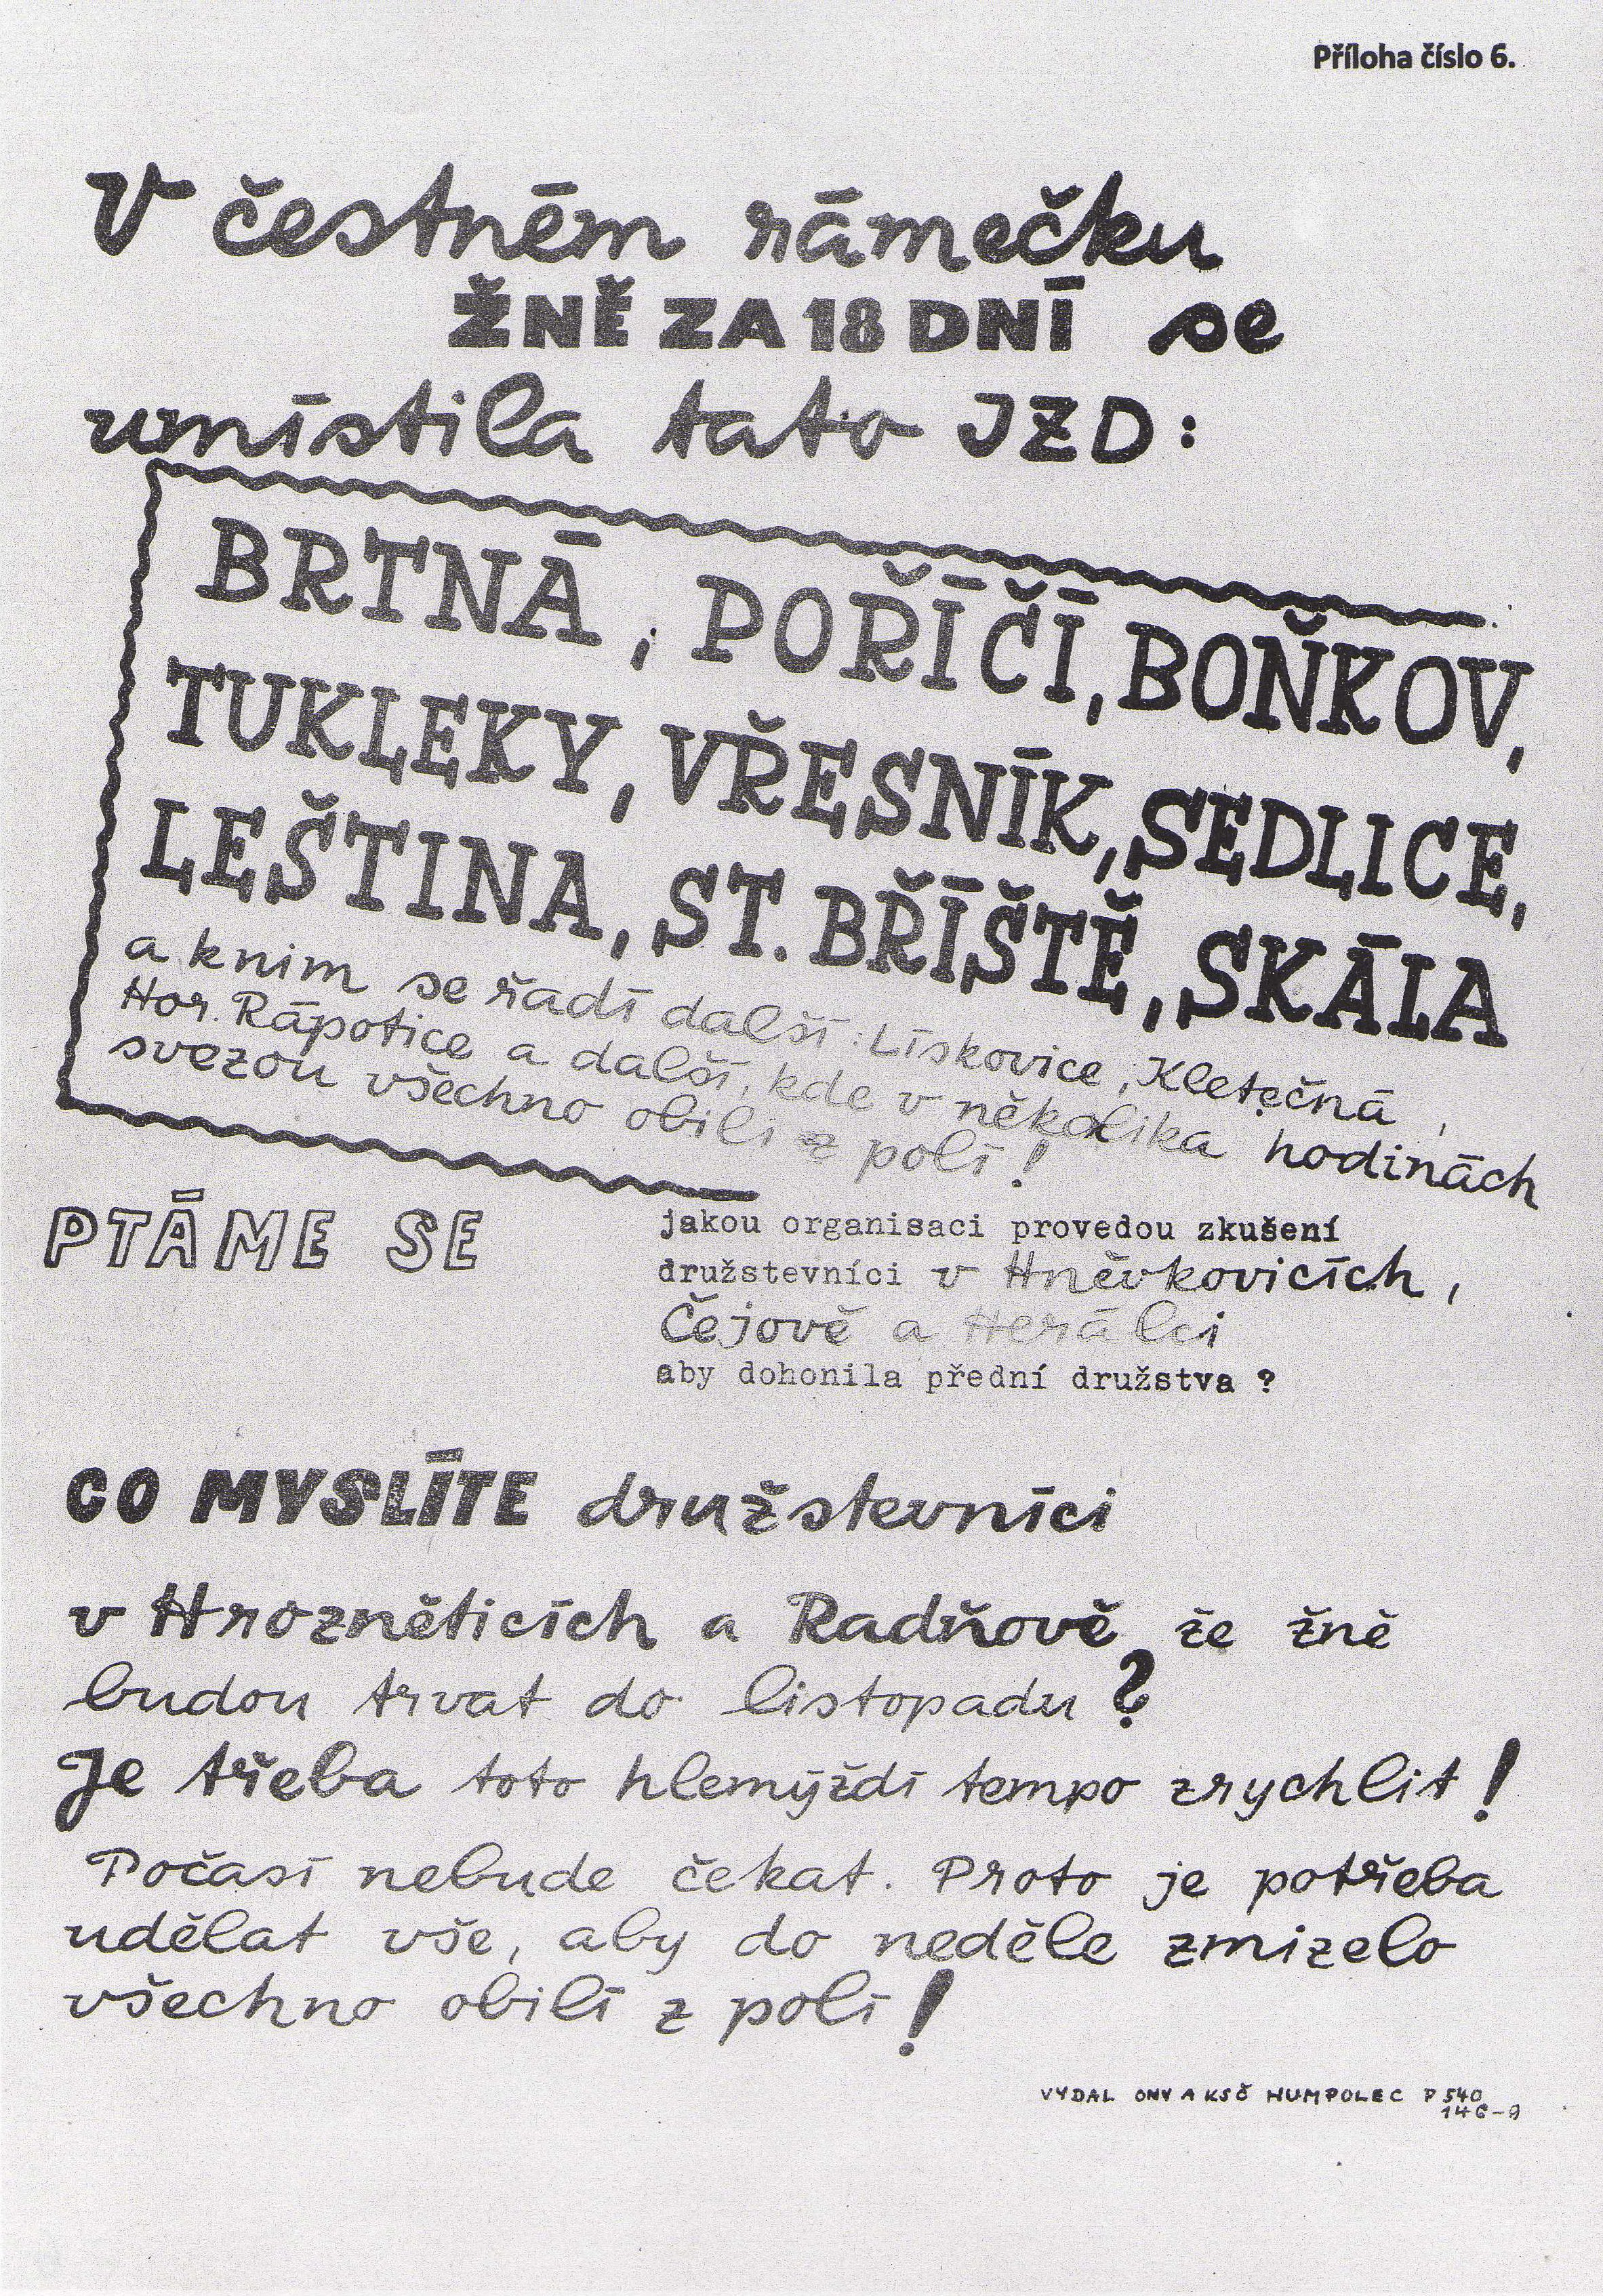 Příloha číslo 6.
V čestném rámečku
ŽNĚ ZA 18 DNÍ se
umístila tato JZD:
BRTNÁ, POŘÍČÍ, BOŇKOV,
TUKLEKY, VŘESNÍK, SEDLICE,
LEŠTINA, ST. BŘÍŠTĚ, SKÁLA
a knim se řadí další: Lískovice, Kletečná,
Hor. Rápotice a další, kde v několika hodinách
svezou všechno obilí z polí!
PTÁME SE
jakou organisaci provedou zkušení
družstevníci v Hněvkovicích,
Čejově a Herálci
aby dohonila přední družstva ?
CO MYSLÍTE družstevníci
v Hrozněticích a Radňově, že žně
budou trvat do listopadu?
Je třeba toto hlemýždí tempo zrychlit!
Počasí nebude čekat. Proto je potřeba
udělat vše, aby do neděle zmizelo
všechno obilí z polí!
VYDAL ONV A KSČ HUMPOLEC P 540
146-9